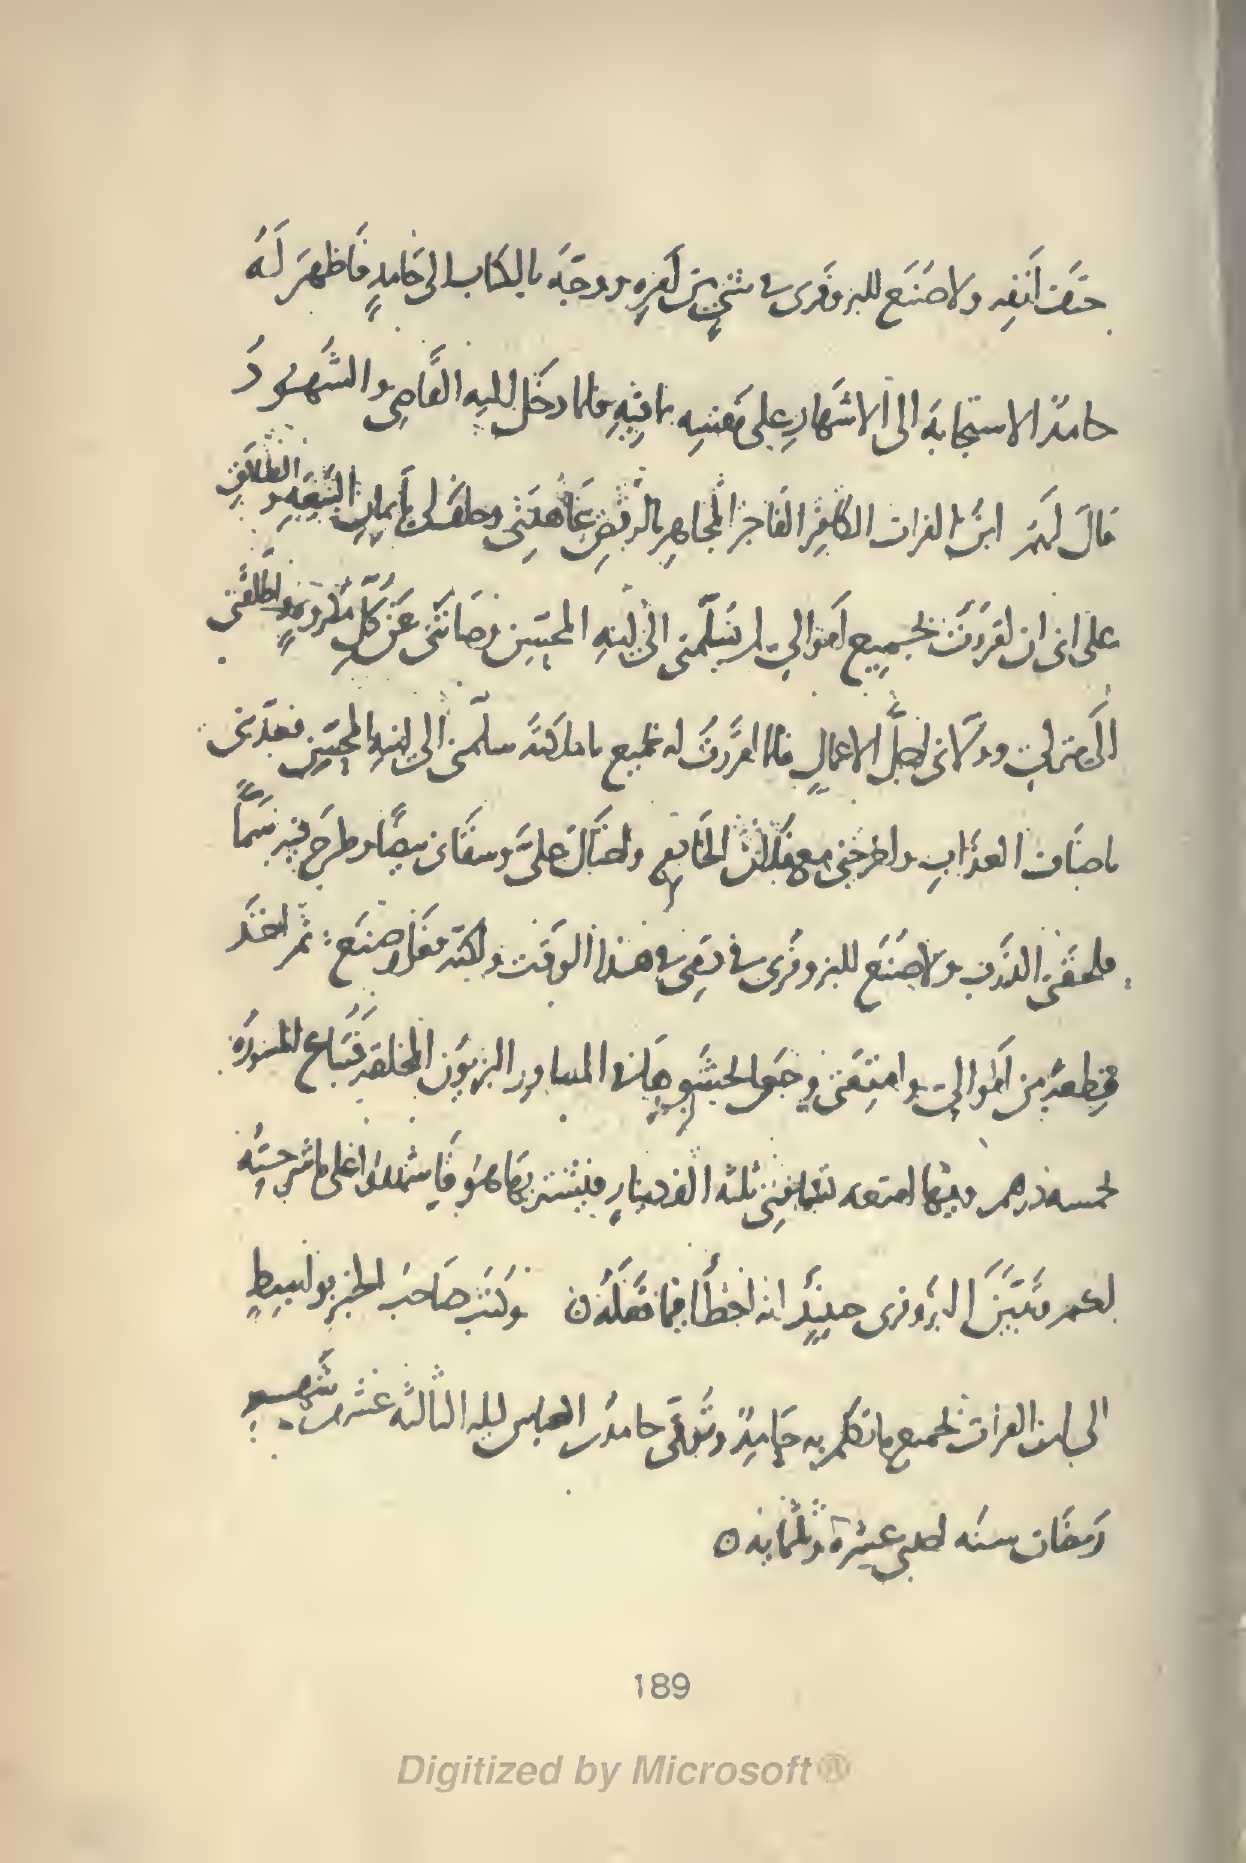 حتف انفه ولا صنع للبزوفرى فى شىء من امره ووجه بالكتاب الى حامد فاظهر له
حامد الاستجابة الى الاشهاد على نفسه بما فيه فلما دخل اليه القاضى والشهود
قال لهم ابن الفرات الكافر الفاجر المجاهر بالرفض عاهدنى وحلف لى بأيمان البيعة والطلاق
على انى ان اقررت بجميع اموالى لم يسلمنى الى ابنه المحسن وصاننى عن كل مكروه واطلقنى
الى منزلى وولانى اجل الاعمال فلما اقررت له بجميع ما ملكته سلمنى الى ابنه المحسن فعذبنى
باصناف العذاب واخرجنى مع فلان الخادم واحتال على وسقانى بيضا وطرح فيه سما
فلحقنى الذرب ولا صنع للبزوفرى فى دمى فى هذا الوقت ولكنه فعل وصنع : ثم اخذ
قطعة من اموالى وامتعتى وجعل يحشوها فى المساور البزيون المخلقة فتباع المسورة
بخمسة دراهم وفيها امتعة تساوى ثلثة الف دينار فيشتريها هو فاشهدوا على ما شرحته
لكم فتبين البزوفرى حينئذ انه اخطأ فيما فعله ن وكتب صاحب الخبر بواسط
الى ابن الفرات بجميع ما تكلم به حامد وتوفى حامد بن العباس ليلة الثالثة عشر من شهر
رمضان سنه احدى عشرة وثلثمائه ن
189
Digitized by Microsoft®